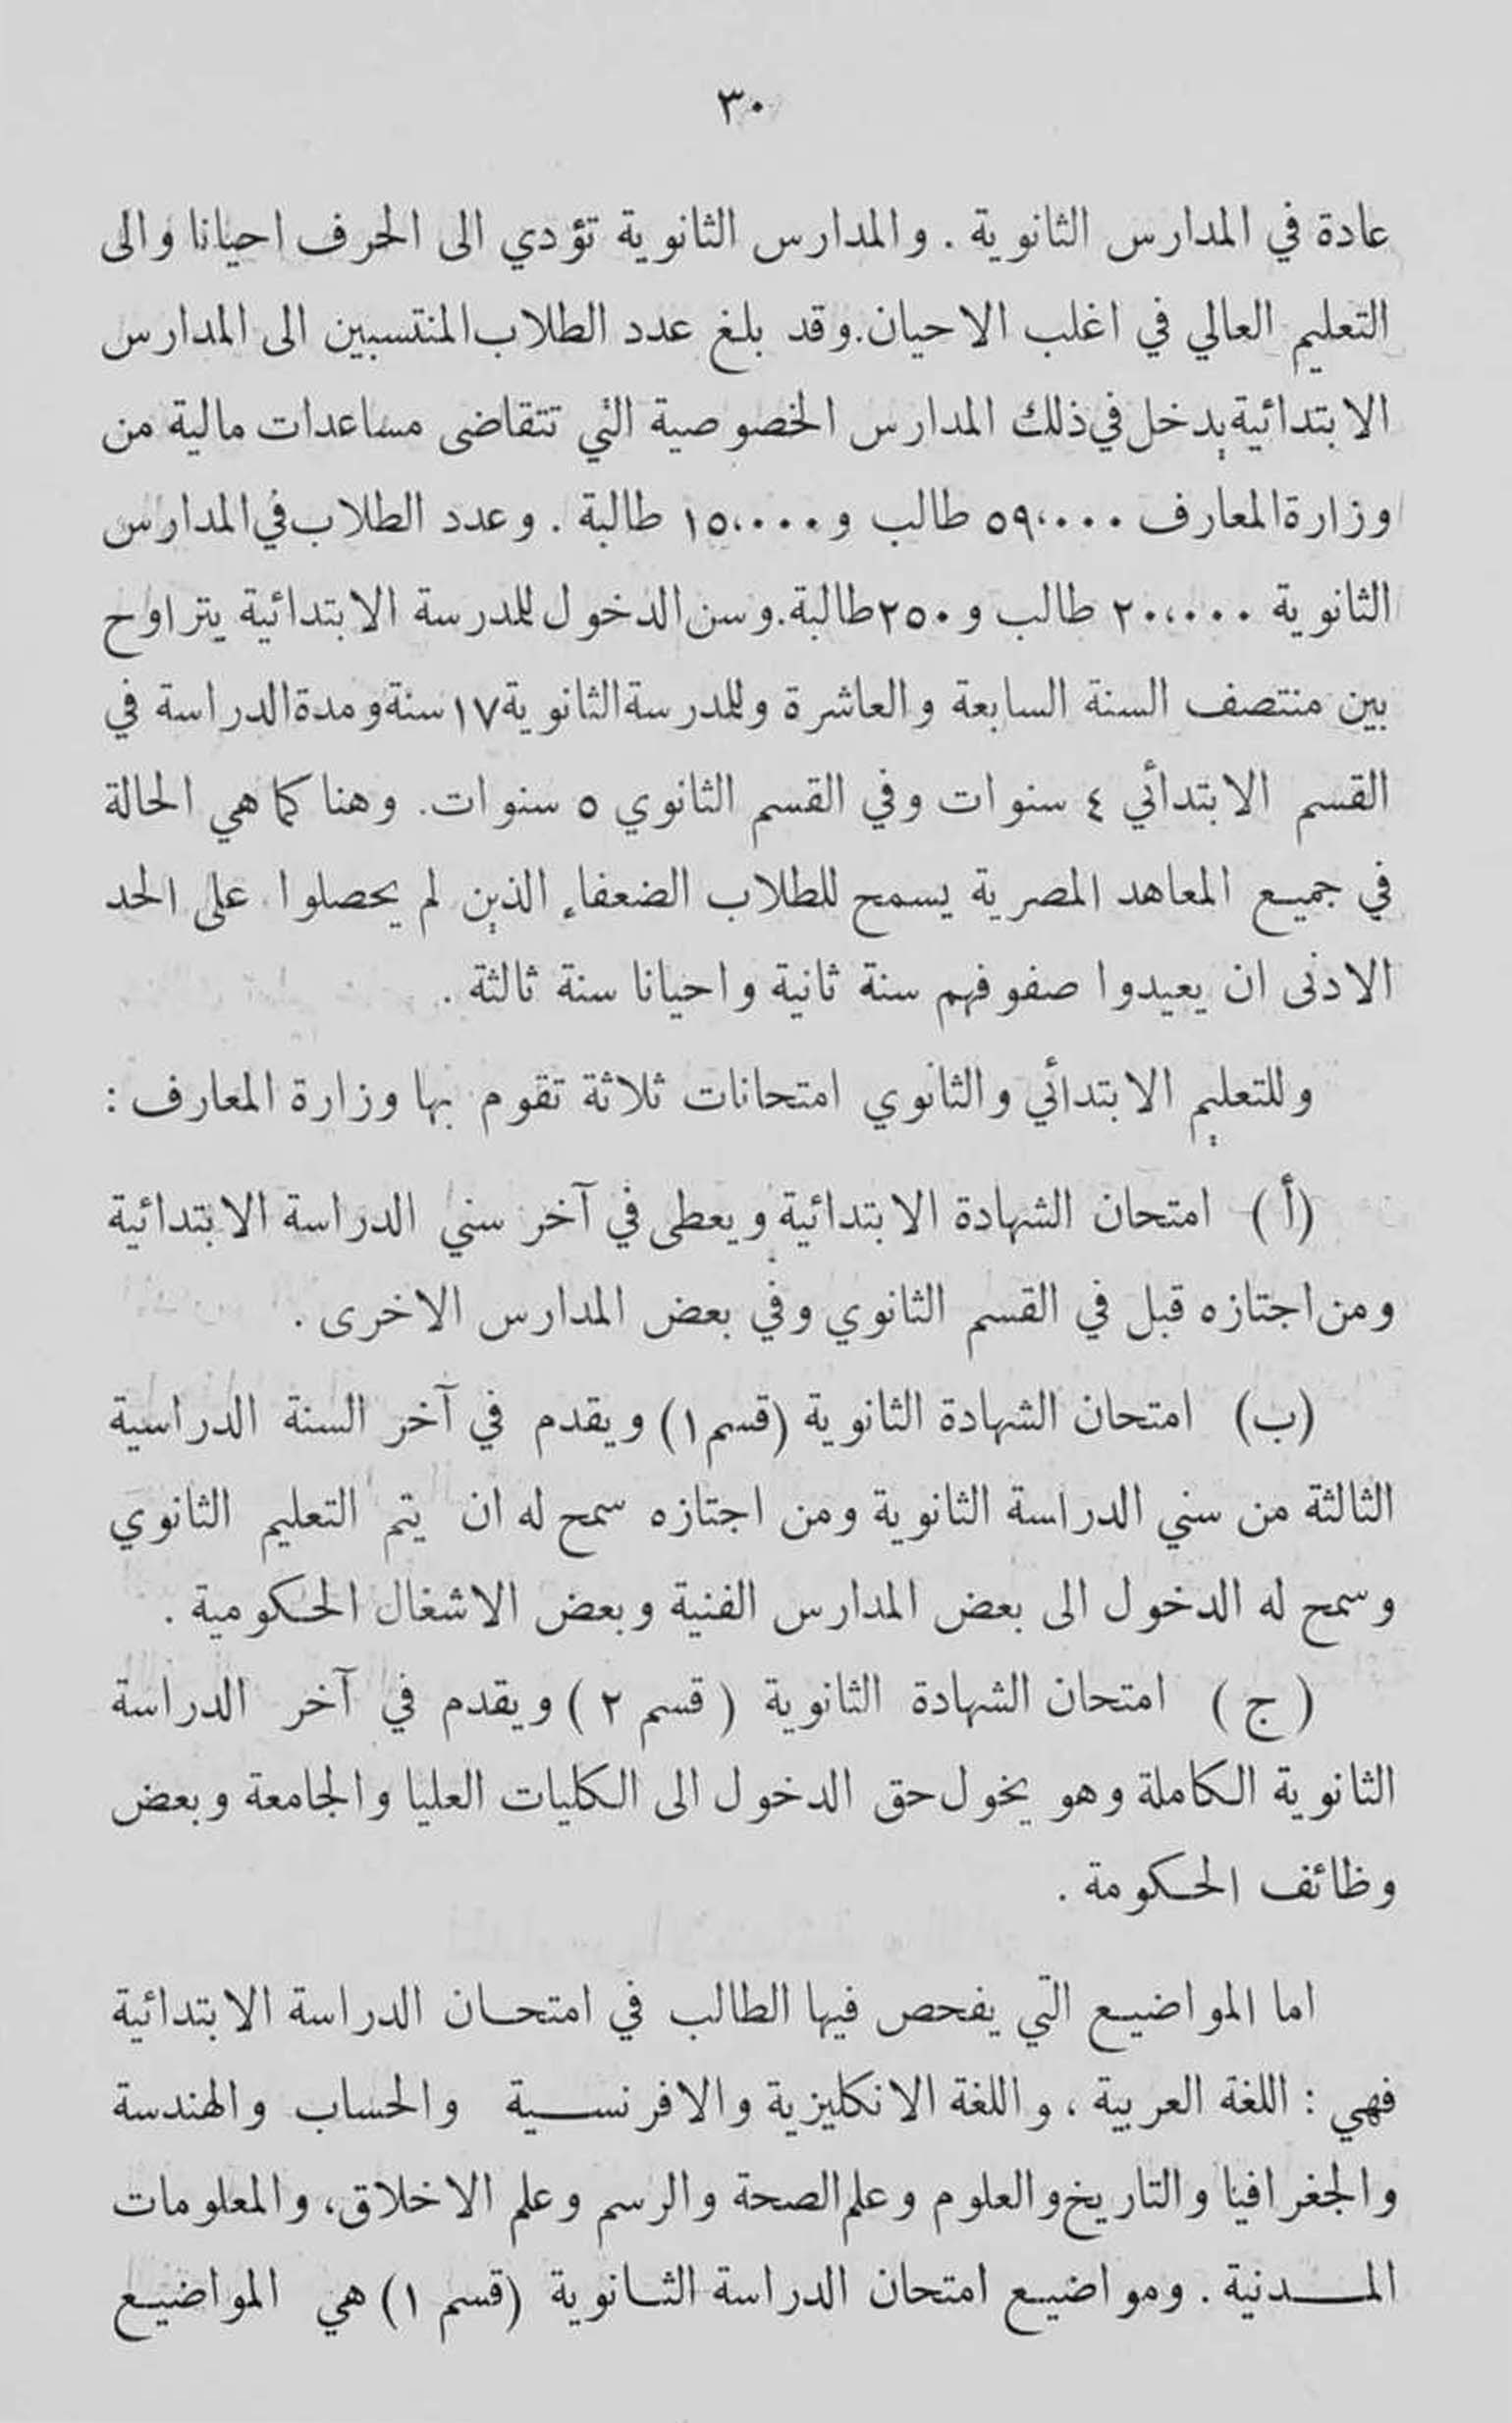 ٣٠
عادة في المدارس الثانوية . والمدارس الثانوية تؤدي الى الحرف احيانا والى
التعليم العالي في اغلب الاحيان.وقد بلغ عدد الطلاب المنتسبين الى المدارس
الابتدائية يدخل في ذلك المدارس الخصوصية التي تتقاضى مساعدات مالية من
وزارة المعارف ٥٩،٠٠٠ طالب و ١٥،٠٠٠ طالبة . وعدد الطلاب في المدارس
الثانوية ٢٠،٠٠٠ طالب و ٢٥٠ طالبة.وسن الدخول للمدرسة الابتدائية يتراوح
بين منتصف السنة السابعة والعاشرة وللمدرسة الثانوية ١٧ سنة ومدة الدراسة في
القسم الابتدائي ٤ سنوات وفي القسم الثانوي ٥ سنوات. وهنا كما هي الحالة
في جميع المعاهد المصرية يسمح للطلاب الضعفاء الذين لم يحصلوا على الحد
الادنى ان يعيدوا صفوفهم سنة ثانية واحيانا سنة ثالثة .
وللتعليم الابتدائي والثانوي امتحانات ثلاثة تقوم بها وزارة المعارف :
(أ) امتحان الشهادة الابتدائية ويعطى في آخر سني الدراسة الابتدائية
ومن اجتازه قبل في القسم الثانوي وفي بعض المدارس الاخرى .
(ب) امتحان الشهادة الثانوية (قسم ١) ويقدم في آخر السنة الدراسية
الثالثة من سني الدراسة الثانوية ومن اجتازه سمح له ان يتم التعليم الثانوي
وسمح له الدخول الى بعض المدارس الفنية وبعض الاشغال الحكومية .
(ج) امتحان الشهادة الثانوية (قسم ٢) ويقدم في آخر الدراسة
الثانوية الكاملة وهو يخول حق الدخول الى الكليات العليا والجامعة وبعض
وظائف الحكومة .
اما المواضيع التي يفحص فيها الطالب في امتحان الدراسة الابتدائية
فهي : اللغة العربية ، واللغة الانكليزية والافرنسية والحساب والهندسة
والجغرافيا والتاريخ والعلوم وعلم الصحة والرسم وعلم الاخلاق، والمعلومات
المدنية . ومواضيع امتحان الدراسة الثانوية (قسم ١) هي المواضيع